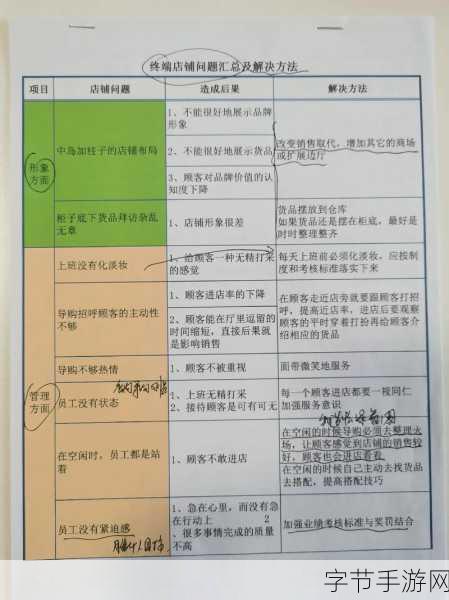 终端店铺问题汇总及解决方法
项目
店铺问题
造成后果
解决方法
形象
方面
中岛加枝子的店铺布局
1、不能很好地展示品牌
形象
2、不能很好地展示货品
3、顾客对品牌价值的认
知度下降
改变销售取代，增加其它的商场
或扩展边厅
柜子底下货品拜访杂乱
无章
1、店铺形象很差
货品摆放到仓库
如果货品还是摆在柜底，最好是
时时整理整齐
管理
方面
上班没有化淡妆
1、给顾客一种无精打采
的感觉
每天上班前必须化淡妆，应按制
度和考核标准落实下来
导购招呼顾客的主动性
不够
1、顾客进店率的下降
2、顾客能在厅里逗留的
时间缩短，直接后果就
是影响销售
在顾客走近店旁就要跟顾客打招
呼，提高进店率，进店后要观察
顾客的平时穿着打扮再给顾客介
绍相应的货品
导购不够热情
1、顾客不被重视
面带微笑地服务
员工没有状态
1、上班无精打采
2、接待顾客是可有可无
每一个顾客进店都要一视同仁
加强服务意识
在空闲时，员工都是站
着
1、顾客不敢进店
在空闲的时候导购必须去整理火
场，让顾客感觉到店铺的销售较
好，顾客也会进店看看
在空闲的时候自己主动去找货品
去搭配，提高搭配技巧
员工没有紧迫感
1、急在心里，而没有急
在行动上 2
、很多事情完成的质量
不高
加强业绩考核标准与奖罚结合
字节手游网